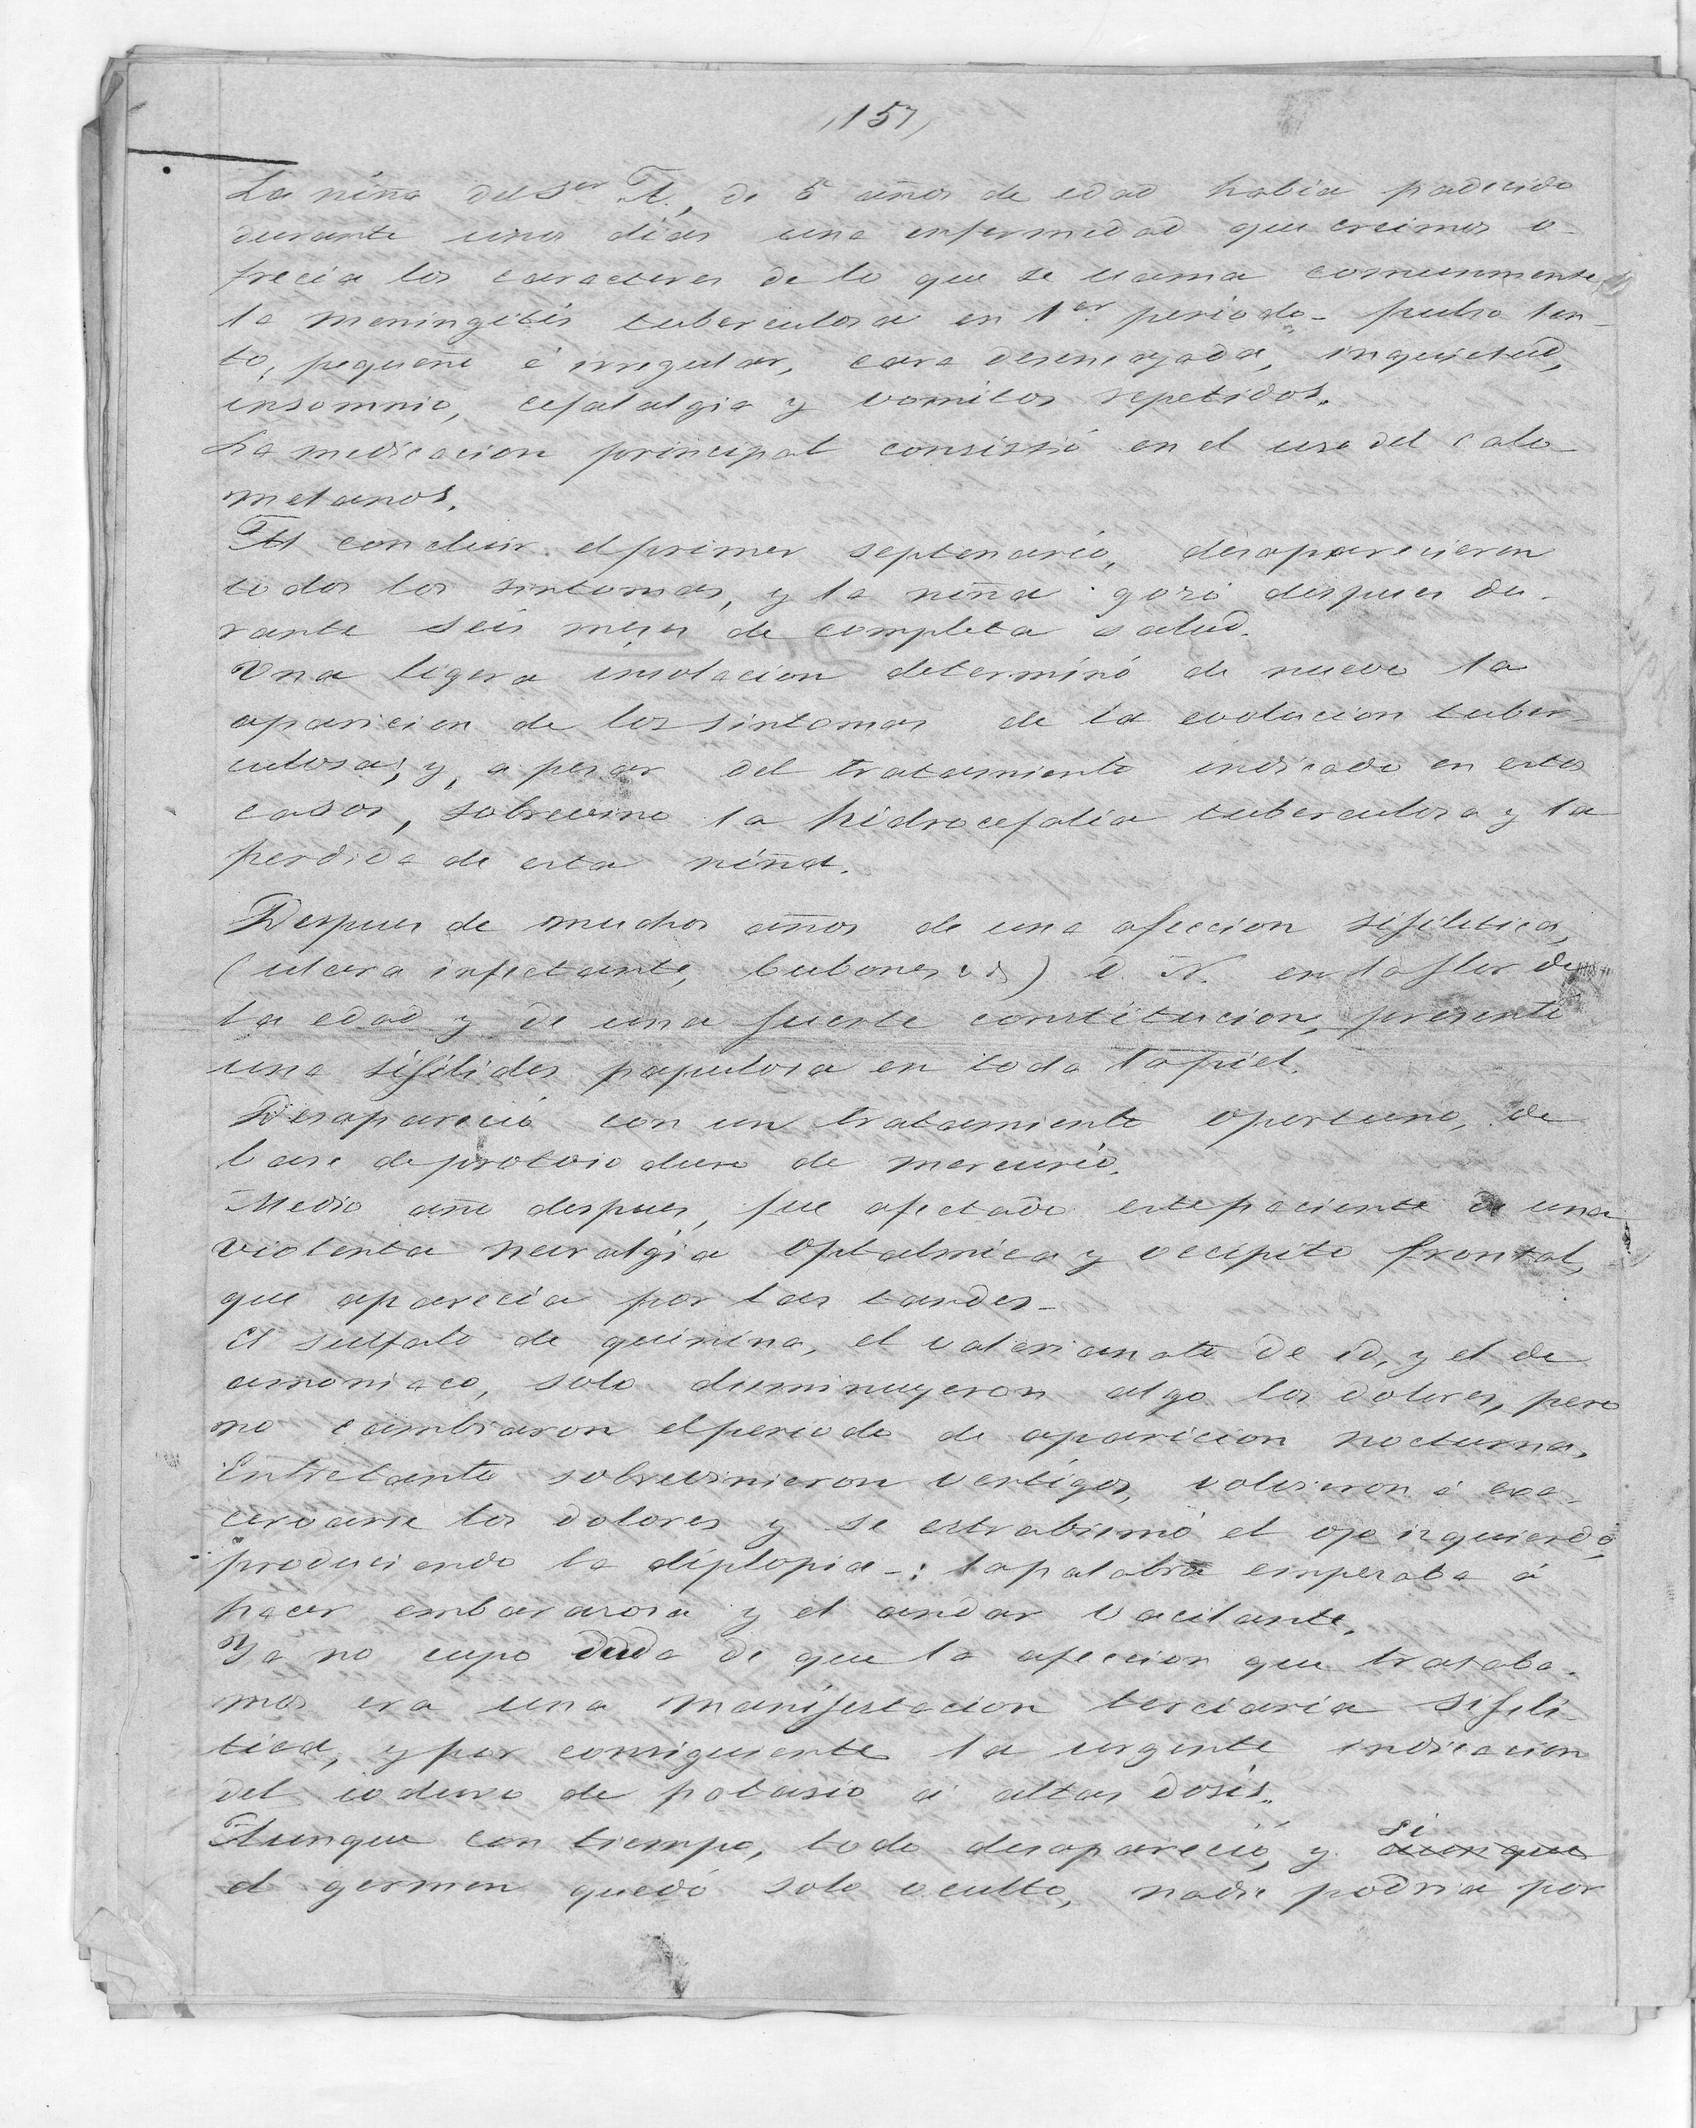 157
La niña del Sor A., de 5 años de edad habia padecido
durante unos dias una enfermedad que creimos o-
frecia los caracteres de lo que se llama comunmente
la meningitis tuberculosa en 1er periodo - pulso len-
to, pequeño é irregular, cara desencajada, inquietud,
insomnio, cefalalgia y vomitos repetidos.
La medicacion principal consistió en el uso del calo-
melanos.
Al concluir el primer septenario, desaparecieron
todos los sintomas, y la niña gozó despues du-
rante seis meses de completa salud.
Una ligera insolacion determinó de nuevo la
aparicion de los sintomas de la evolucion tuber-
culosa; y, a pesar del tratamiento indicado en estos
casos, sobrevino la hidrocefalia tuberculosa y la
perdida de esta niña.
Despues de muchos años de una afeccion sifilitica,
(ulcera infectante, bubones) D. N. en la flor de
la edad y de una fuerte constitucion, presentó
una sifilides papulosa en toda la piel.
Desapareció con un tratamiento oportuno, de
base de protoioduro de mercurio.
Medio año despues, fue afectado este paciente de una
violenta neuralgia oftalmica y occipito frontal,
que aparecia por las tardes -
El sulfato de quinina, el valerianato de id, y el de
amoniaco, solo disminuyeron algo los dolores, pero
no cambiaron el periodo de aparicion nocturna.
Entretanto sobrevinieron vertigos, volvieron á exa-
cervarse los dolores y se estrabismó el ojo izquierdo,
produciendo la diplopia -: la palabra empezaba á
hacer embarazosa y el andar vacilante.
Ya no cupo duda de que la afeccion que trataba-
mos era una manifestacion terciaria sifili-
tica, y por consiguiente la urgente indicacion
del ioduro de potasio á altas dosis.
Aunque con tiempo, todo desapareció, y si aunque
el germen quedó solo oculto, nadie podria por